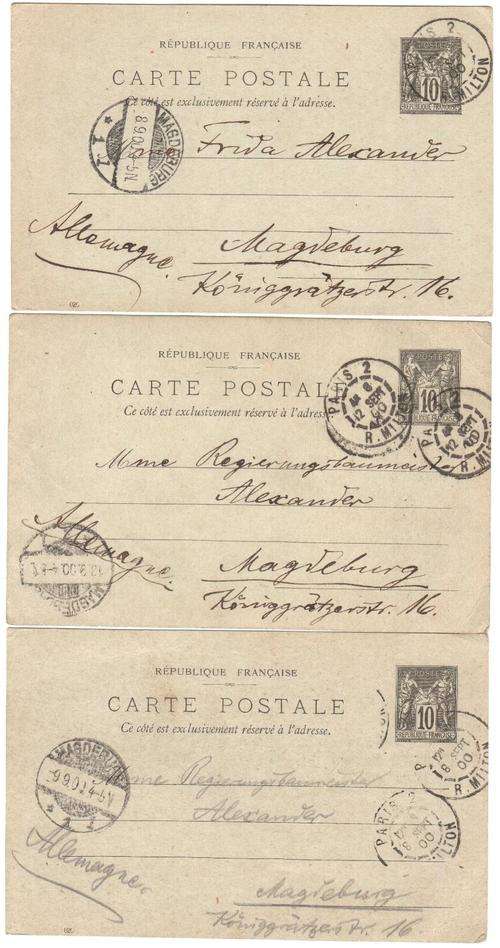 RÉPUBLIQUE FRANÇAISE
CARTE POSTALE
Ce côté est exclusivement réservé à l'adresse.
PARIS 2
MILTON
POSTES
10
RÉPUBLIQUE FRANÇAISE
MAGDEBURG
8.9.00
* 1
Frida Alexander
Allemagne.
Magdeburg
Königgrätzerstr. 16.
RÉPUBLIQUE FRANÇAISE
CARTE POSTALE
Ce côté est exclusivement réservé à l'adresse.
PARIS 2
12 SEPT
00
R. MILTON
POSTES
10
12 SEPT
R. MIL
Mme Regierungsbaumeister
Alexander
Allemagne.
MAGDE
Magdeburg
Königgrätzerstr. 16.
RÉPUBLIQUE FRANÇAISE
CARTE POSTALE
Ce côté est exclusivement réservé à l'adresse.
POSTES
10
RÉPUBLIQUE FRANÇAISE
8 SEPT
00
R. MILTON
MAGDEBURG
9.9.00
Mme Regierungsbaumeister
Alexander
PARIS
8 SEPT
00
MILTON
Allemagne.
Magdeburg
Königgrätzerstr. 16.